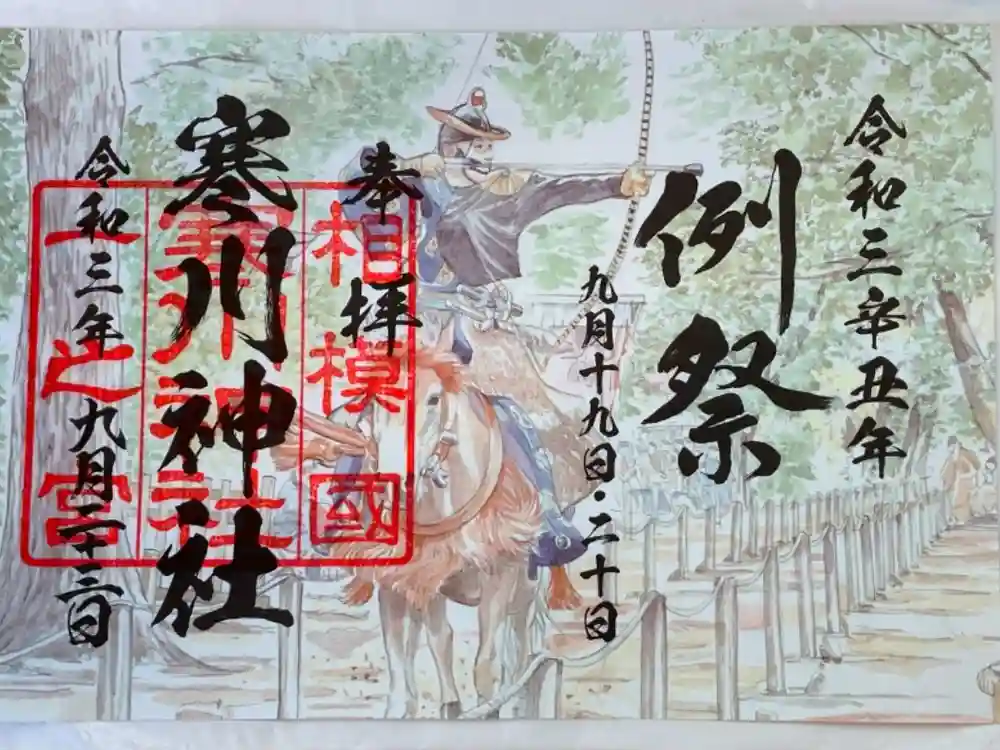 令和三辛丑年
例祭
九月十九日・二十日
奉拝
寒川神社
令和三年九月二十三日
相模國
寒川神社
一之宮